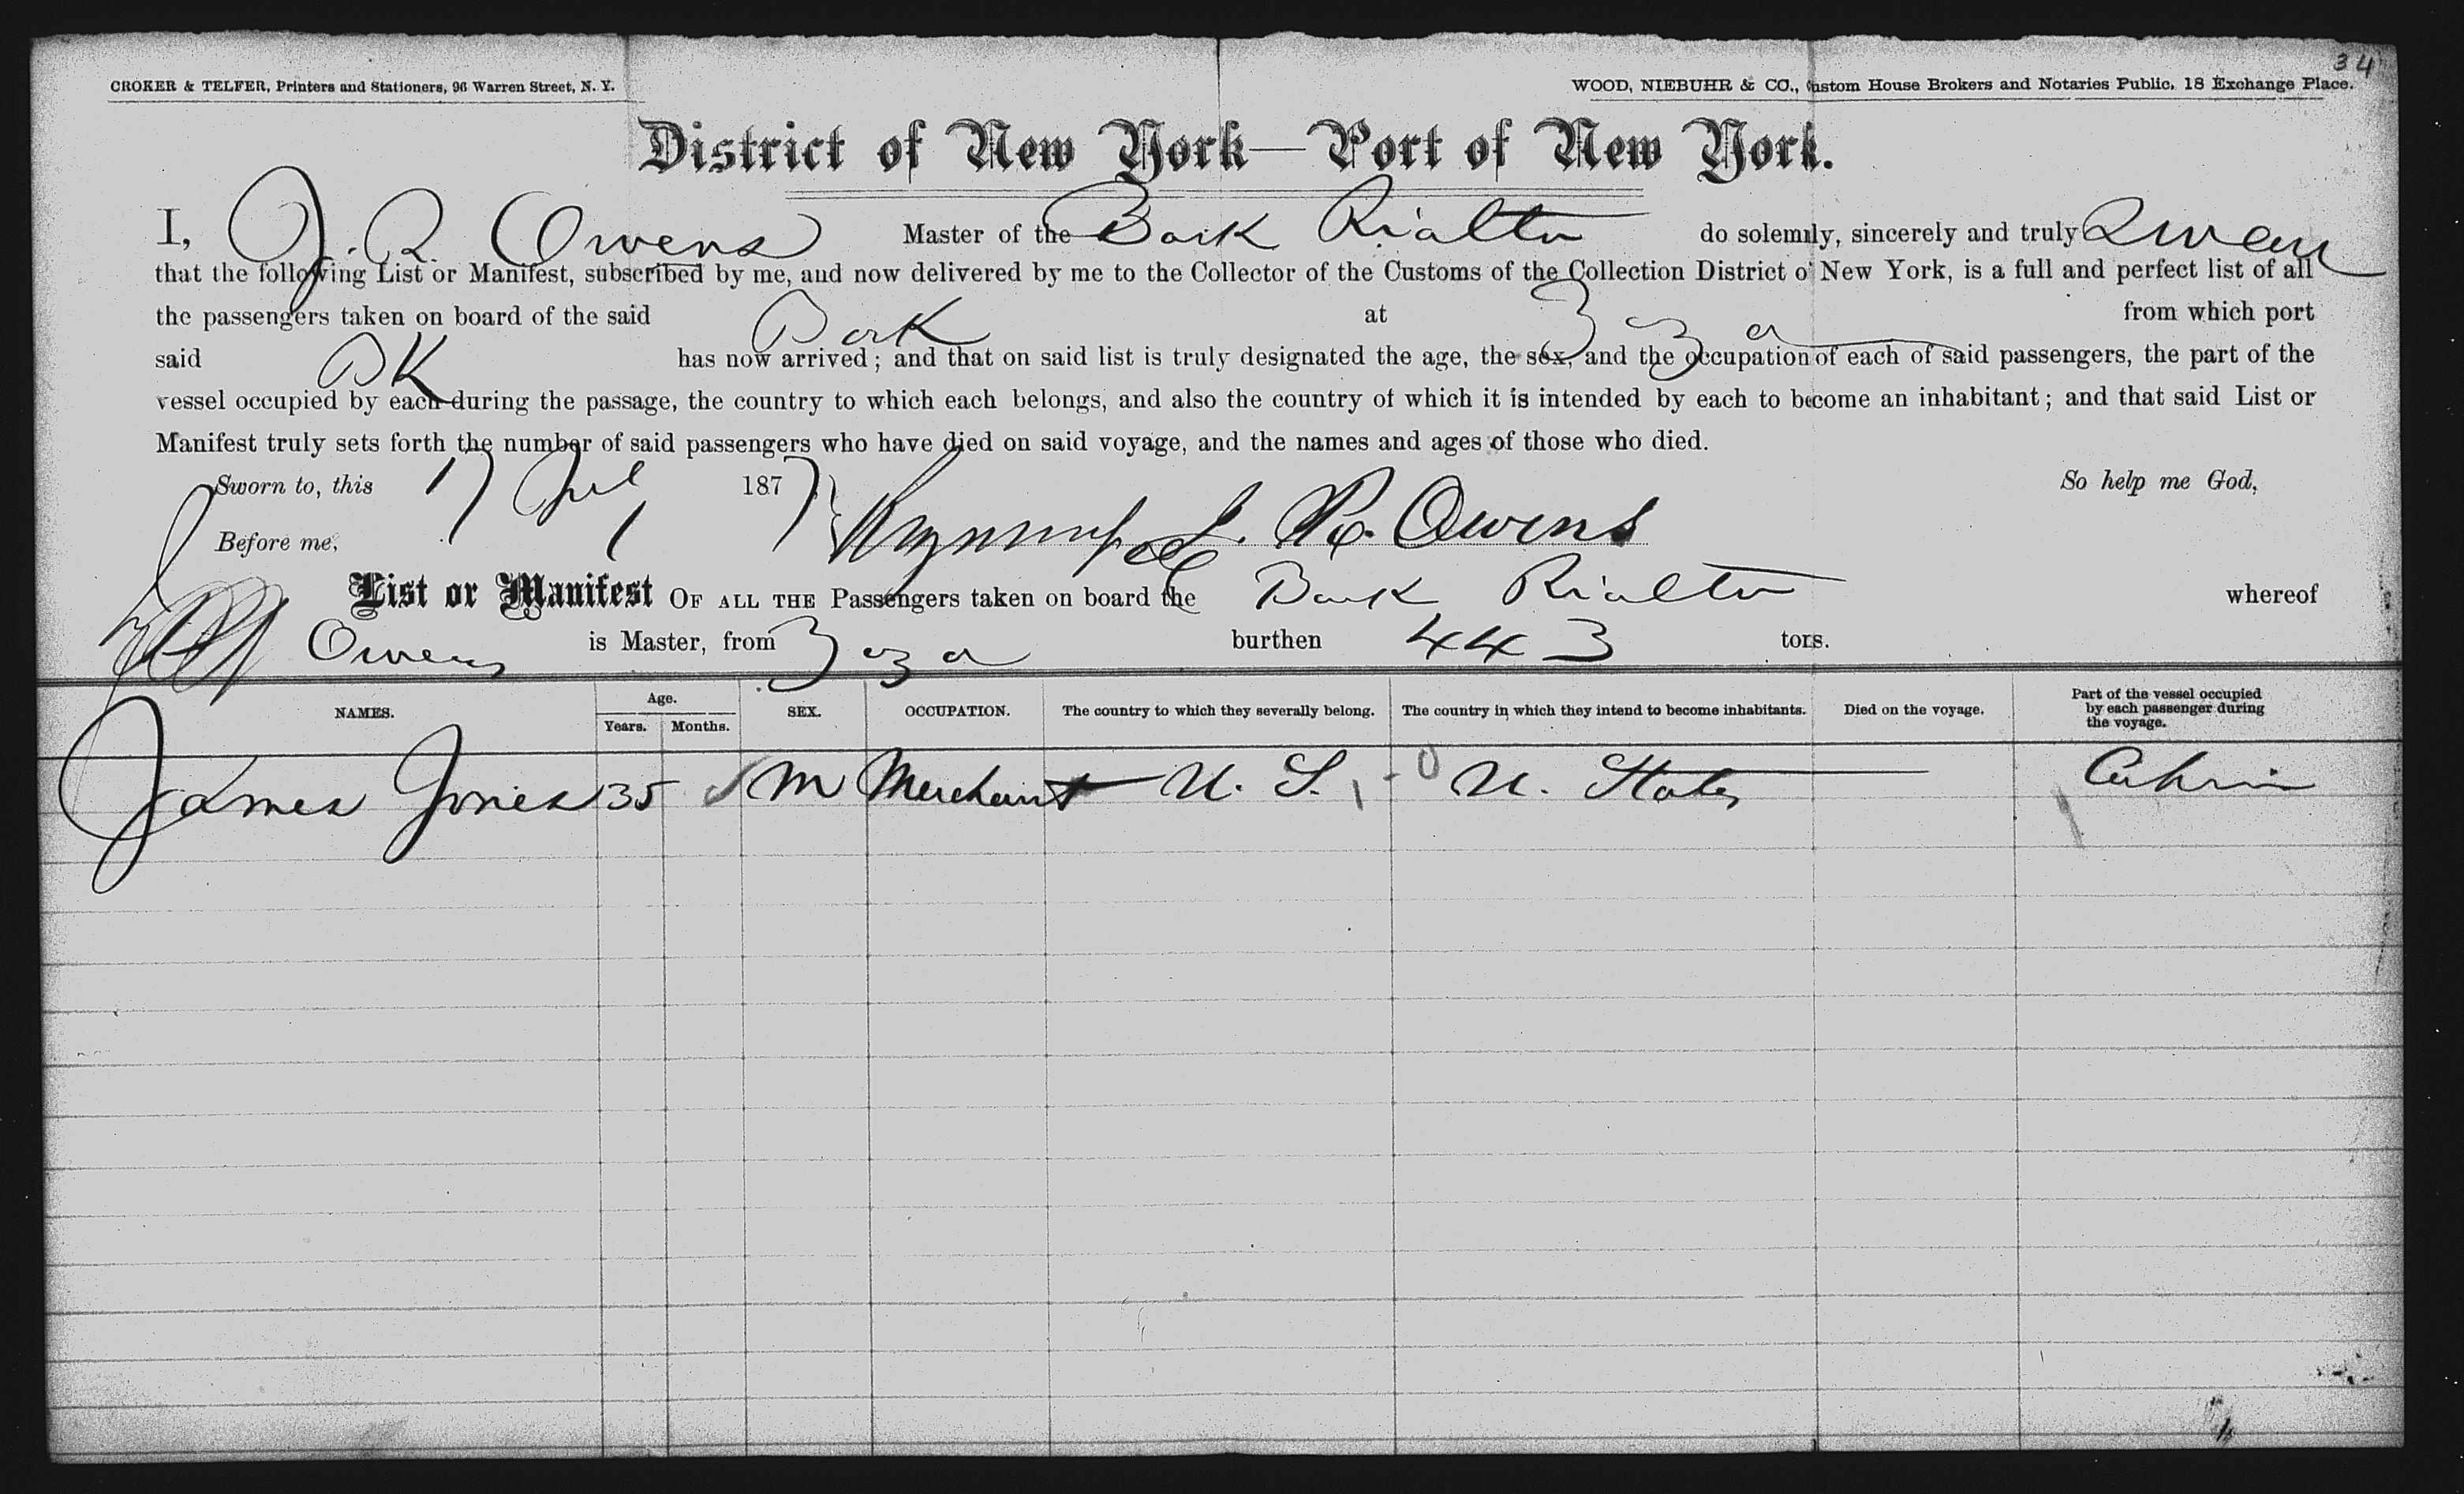 34
CROKER & TELFER, Printers and Stationers, 96 Warren Street, N. Y.
WOOD, NIEBUHR & CO., Custom House Brokers and Notaries Public, 18 Exchange Place.
District of New York—Port of New York.
I, J. R. Owens Master of the Bark Rialto do solemnly, sincerely and truly Swear
that the following List or Manifest, subscribed by me, and now delivered by me to the Collector of the Customs of the Collection District of New York, is a full and perfect list of all
the passengers taken on board of the said Bark at Zaza from which port
said BK has now arrived; and that on said list is truly designated the age, the sex, and the occupation of each of said passengers, the part of the
vessel occupied by each during the passage, the country to which each belongs, and also the country of which it is intended by each to become an inhabitant; and that said List or
Manifest truly sets forth the number of said passengers who have died on said voyage, and the names and ages of those who died.
Sworn to, this 17 July 1877 So help me God,
Before me, R. Owens
List or Manifest OF ALL THE Passengers taken on board the Bark Rialto whereof
Owens is Master, from Zaza burthen 443 tons.
NAMES. Age. Years. Months. SEX. OCCUPATION. The country to which they severally belong. The country in which they intend to become inhabitants. Died on the voyage. Part of the vessel occupied by each passenger during the voyage.
James Jones 35 M Merchant U. S. U. States Cabin